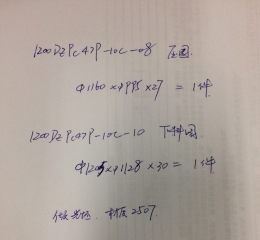 1200DZPC47P-10C-08 压圈
Φ1160×Φ995×27 = 1件
1200DZPC47P-10C-10 下料圈
Φ1205×Φ1128×30 = 1件
材质2507.